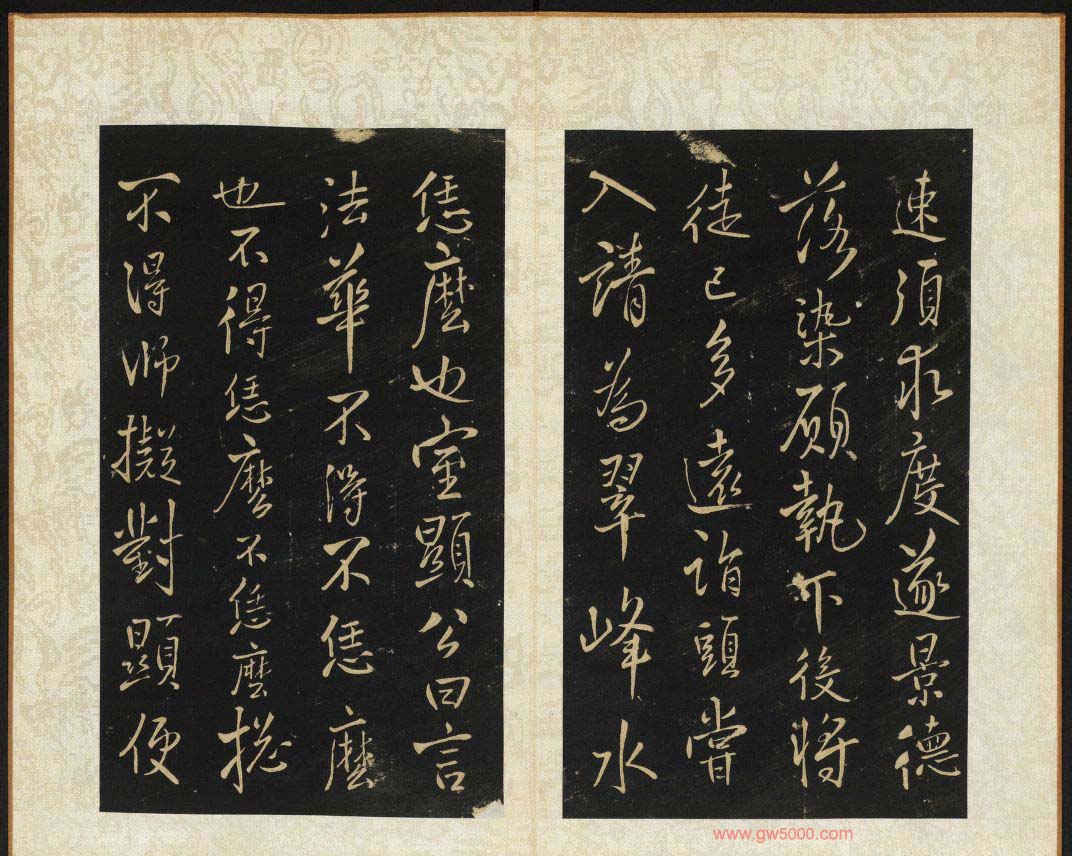 速須求度遂景德
落染願執尒後將
徒已多遠詣頭嘗
入請為翠峰水
恁麼也室顯公曰言
法華不得不恁麼
也不得恁麼不恁麼捴
不得師擬對顯便
www.gw5000.com